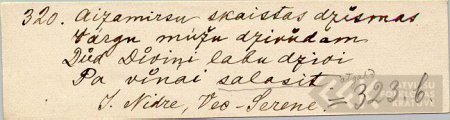 320. Aizamirsu skaistas dzismas
Vārgu mūžu dzivudam
Dūd Diviņi labu dzivi
Pa vinai salasit
J. Nidre, Vec-Serene. = 323,6.